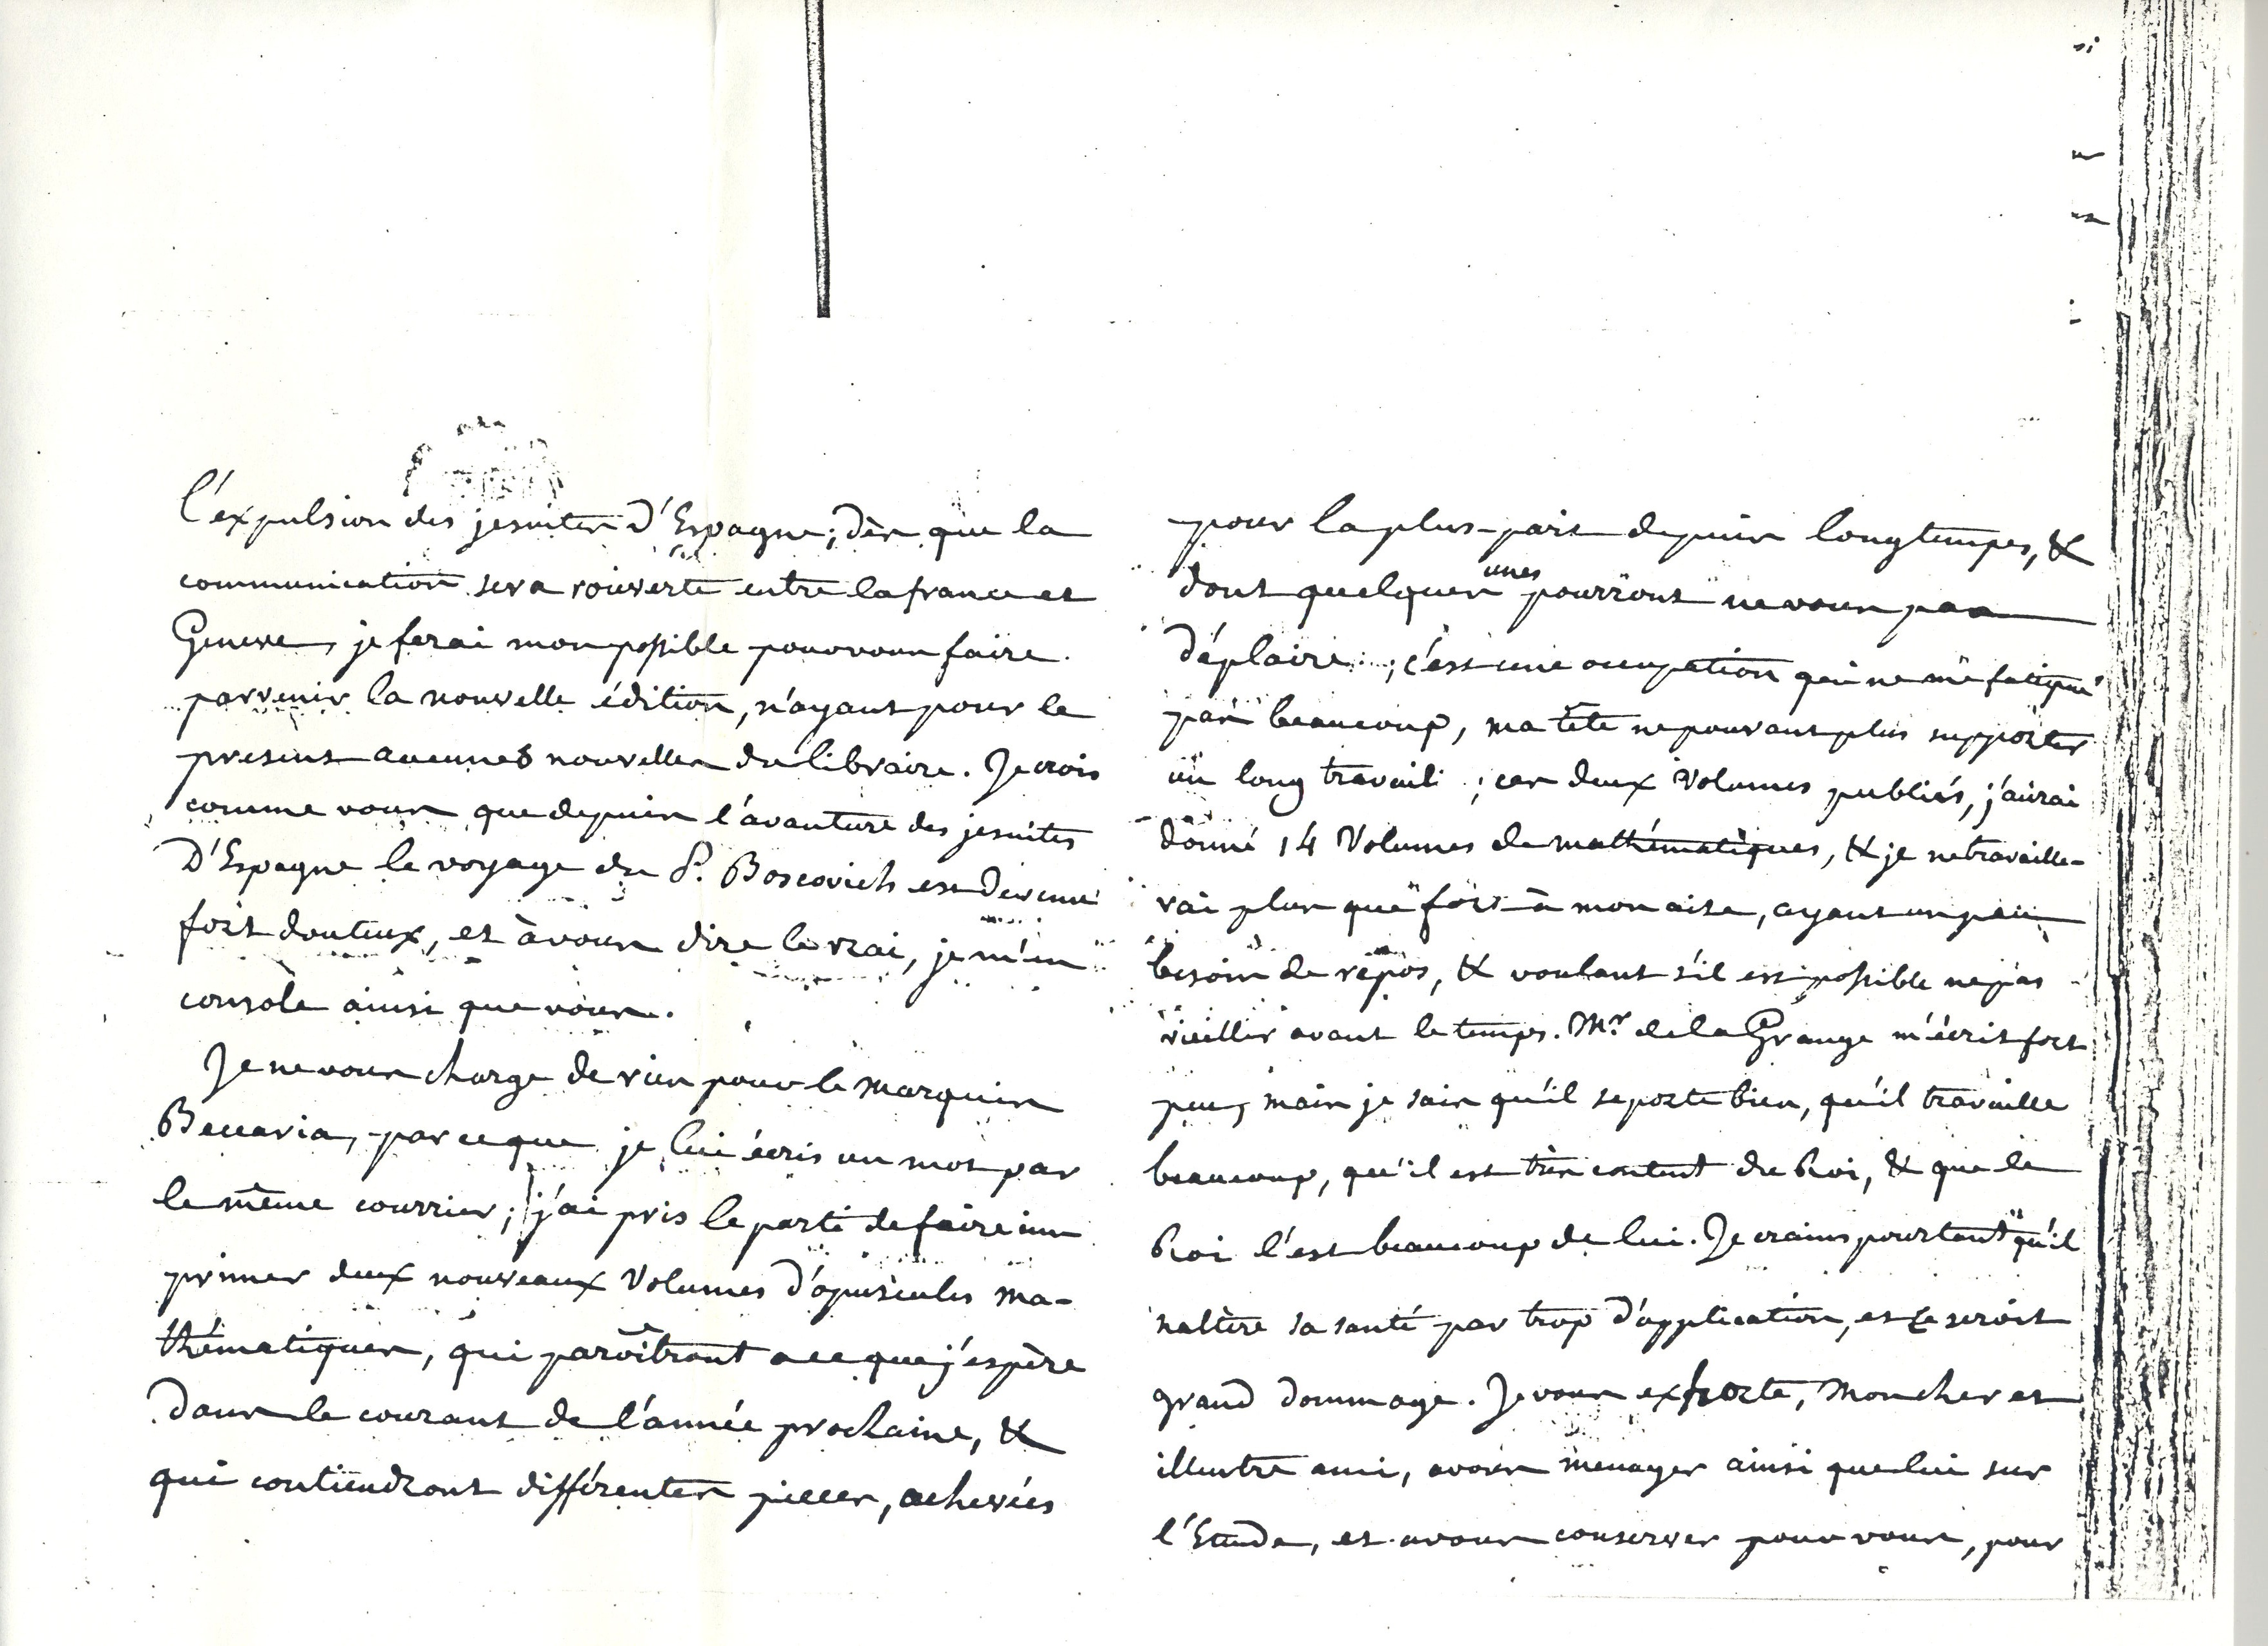 l'expulsion des jesuites d'Espagne; dès que la
communication sera rouverte entre la france et
Geneve, je ferai mon possible pour vous faire
parvenir la nouvelle édition, n'ayant pour le
present aucunes nouvelles du libraire. Je crois
comme vous que depuis l'avanture des jesuites
d'Espagne le voyage du P. Boscovich est devenu
fort douteux, et à vous dire le vrai, je m'en
console ainsi que vous.
Je ne vous charge de rien pour le Marquis
Beccaria, parceque je lui écris un mot par
le même courrier; j'ai pris le parti de faire im
primer deux nouveaux Volumes d'opuscules ma-
thématiques, qui paroîtront a ce que j'espère
dans le courant de l'année prochaine, &
qui contiendront différentes pieces, achevées
pour la plus-part depuis longtemps, &
dont quelques unes pourront ne vous pas
déplaire; c'est une occupation qui ne me fatigue
pas beaucoup, ma tête ne pouvant plus supporter
un long travail; ces deux Volumes publiés, j'aurai
donné 14 Volumes de mathématiques, & je ne travaille-
rai plus que fort à mon aise, ayant un peu
besoin de repos, & voulant s'il est possible ne pas
vieillir avant le temps. Mr. de la Grange m'écrit fort
peu, mais je sais qu'il se porte bien, qu'il travaille
beaucoup, qu'il est très content du Roi, & que le
Roi l'est beaucoup de lui. Je crains pourtant qu'il
n'altère sa santé par trop d'application, et ce seroit
grand dommage. Je vous exhorte, mon cher et
illustre ami, a vous menager ainsi que lui sur
l'Etude, et a vous conserver pour vous, pour